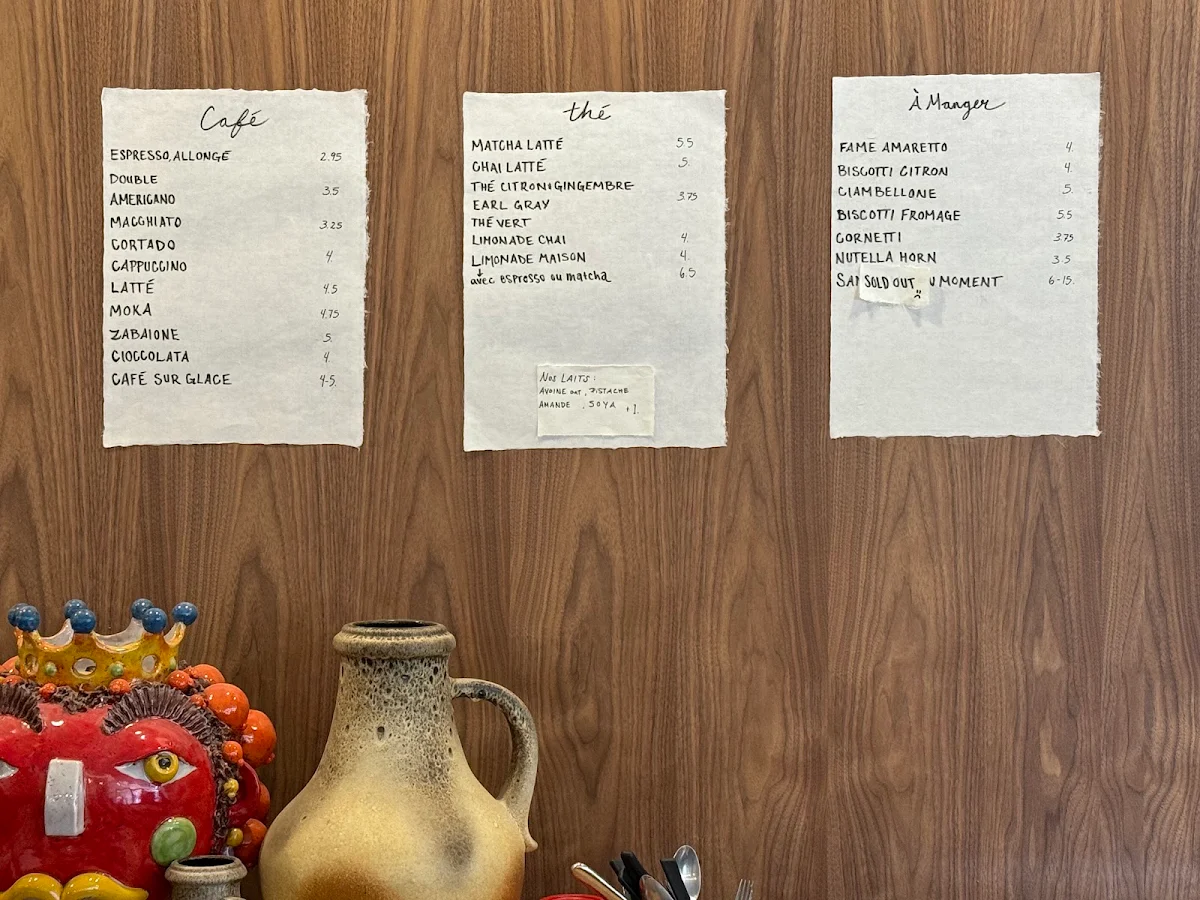 Café
ESPRESSO, ALLONGÉ 2.95
DOUBLE
AMERICANO 3.5
MACCHIATO 3.25
CORTADO
CAPPUCCINO 4.
LATTÉ 4.5
MOKA 4.75
ZABAIONE 5.
CIOCCOLATA 4.
CAFÉ SUR GLACE 4-5.
thé
MATCHA LATTÉ 5.5
CHAI LATTÉ 5.
THÉ CITRON & GINGEMBRE
EARL GRAY 3.75
THÉ VERT
LIMONADE CHAI 4.
LIMONADE MAISON 4.
avec espresso ou matcha 6.5
NOS LAITS :
AVOINE OAT, PISTACHE
AMANDE , SOYA +1.
À Manger
FAME AMARETTO 4.
BISCOTTI CITRON 4.
CIAMBELLONE 5.
BISCOTTI FROMAGE 5.5
CORNETTI 3.75
NUTELLA HORN 3.5
SAN SOLD OUT U MOMENT 6-15.